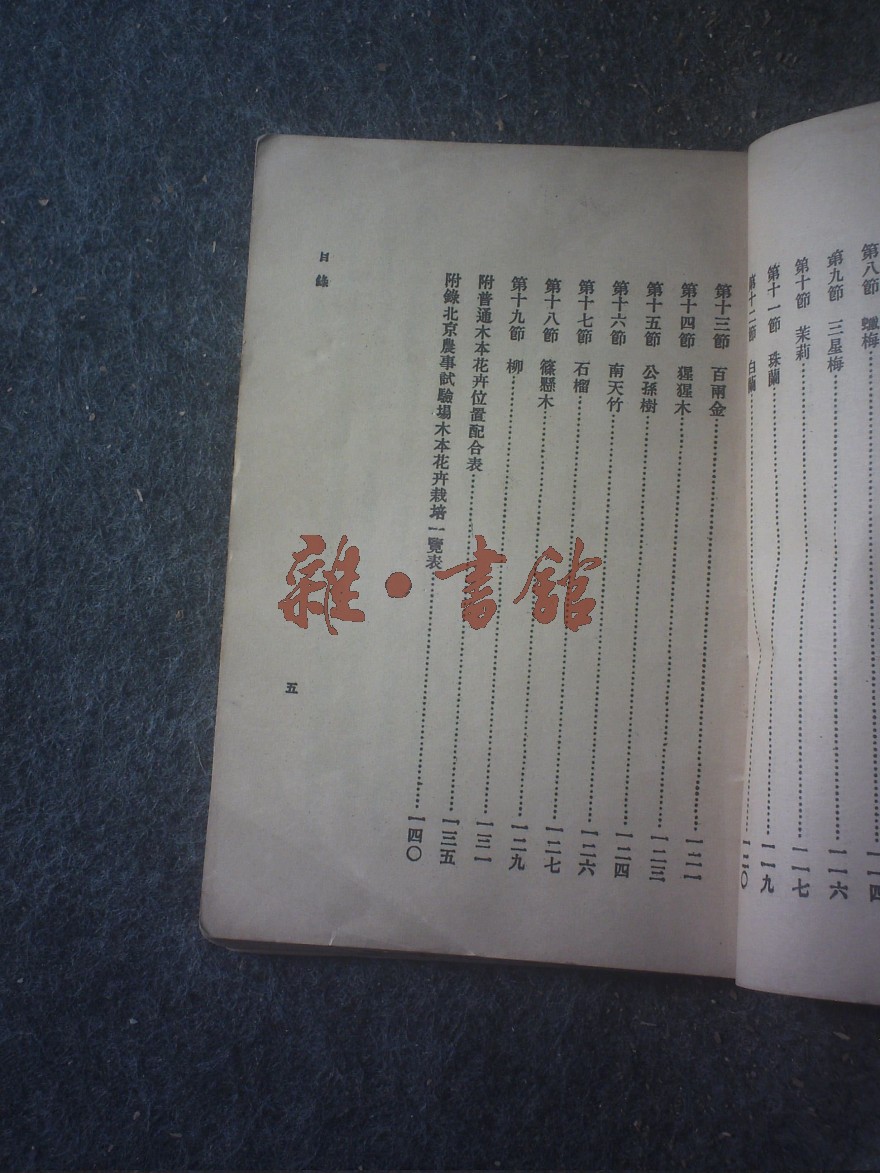 第八節　蠟梅⋯⋯一一四
第九節　三星梅⋯⋯一一六
第十節　茉莉⋯⋯一一七
第十一節　珠蘭⋯⋯一一九
第十二節　白⋯⋯一二〇
第十三節　百兩金⋯⋯一二一
第十四節　猩猩木⋯⋯一二三
第十五節　公孫樹⋯⋯一二四
第十六節　南天竹⋯⋯一二六
第十七節　石榴⋯⋯一二七
第十八節　篠懸木⋯⋯一二九
第十九節　柳⋯⋯一三一
附普通木本花卉位置配合表⋯⋯一三五
附錄北京農事試驗場木本花卉栽培一覽表⋯⋯一四〇
目錄
五
雜·書館